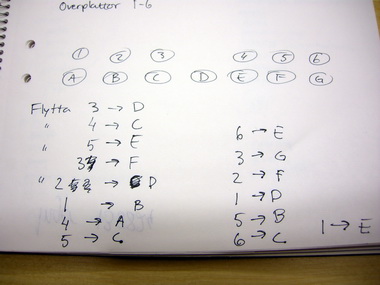 Överplattor 1-6
1 2 3 4 5 6
A B C D E F G
Flytta 3 → D
" 4 → C
" 5 → E
3 → F
" 2 → D
1 → B
4 → A
5 → C
6 → E
3 → G
2 → F
1 → D
5 → B
6 → C 1 → E